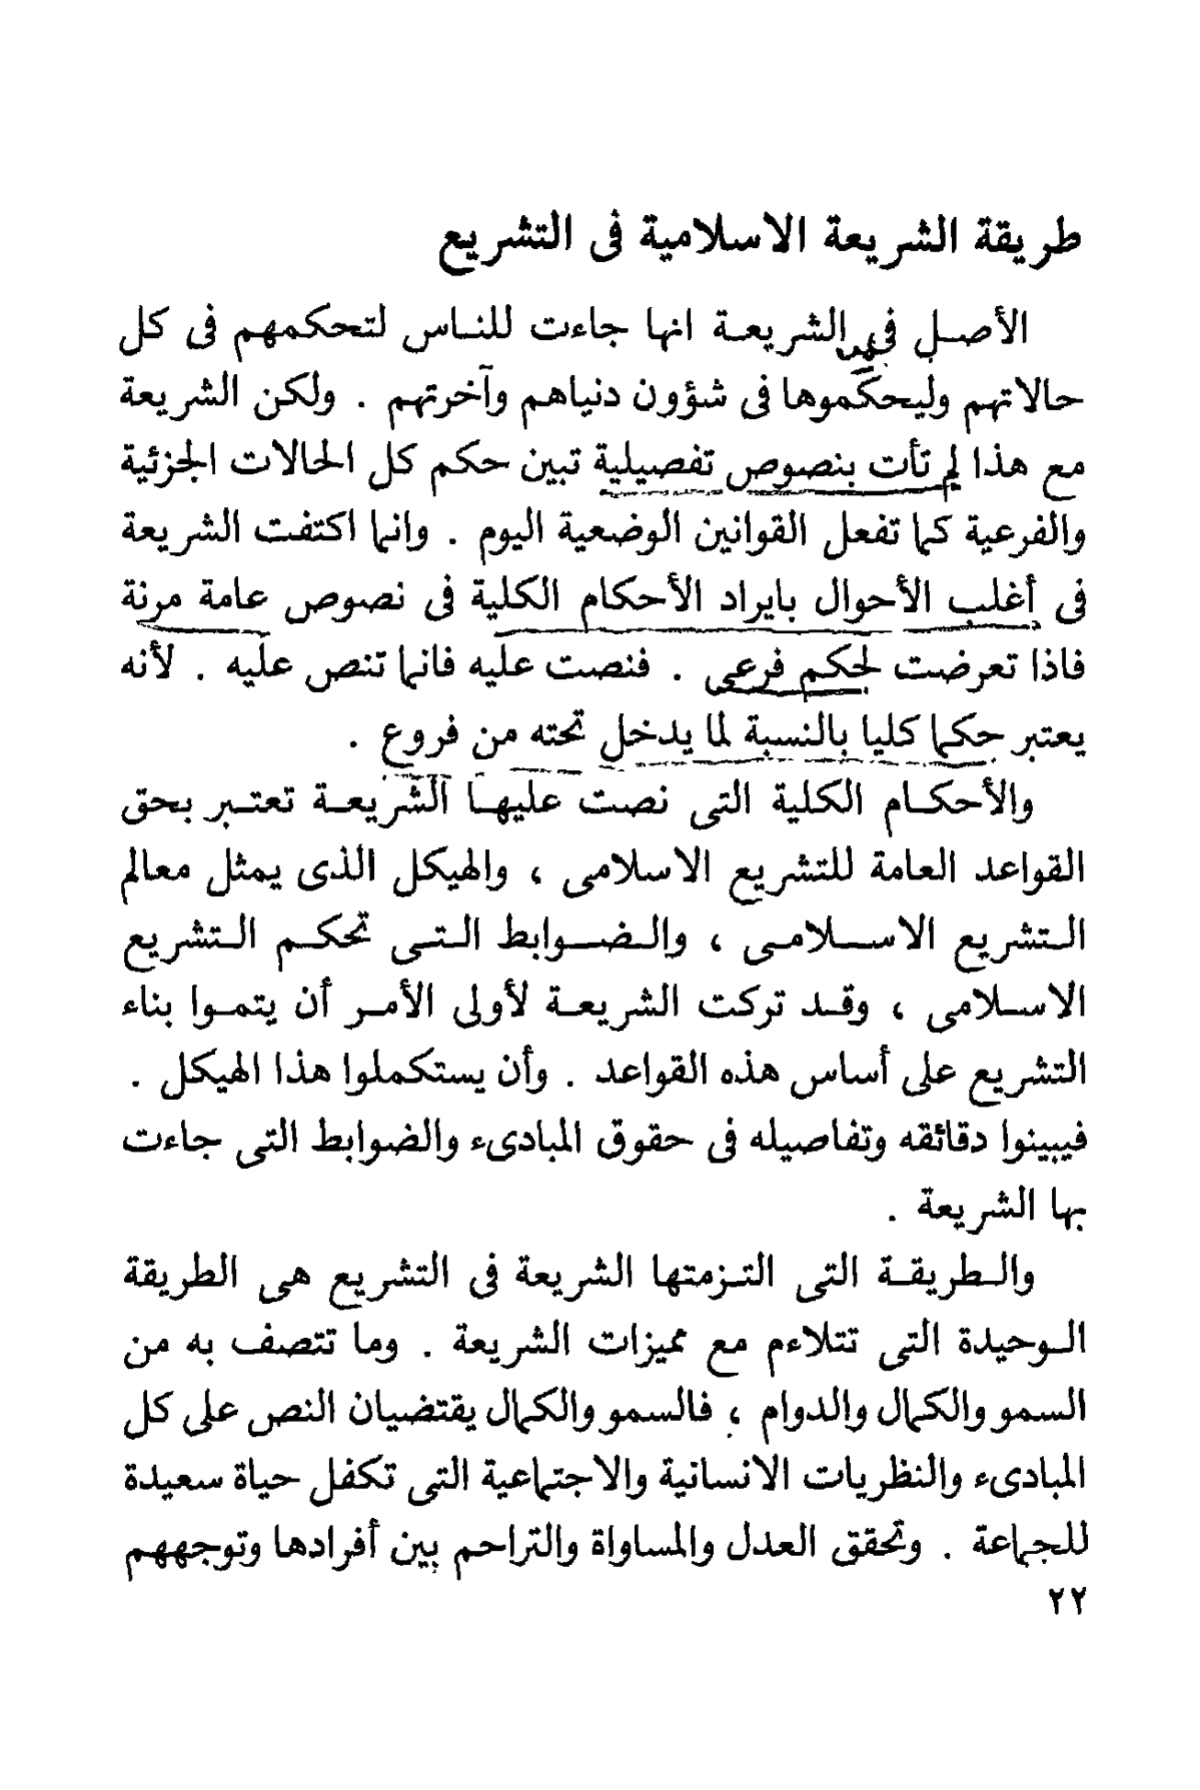 طريقة الشريعة الاسلامية فى التشريع
الأصل فى الشريعة انها جاءت للناس لتحكمهم فى كل
حالاتهم وليحكموها فى شؤون دنياهم وآخرتهم . ولكن الشريعة
مع هذا لم تأت بنصوص تفصيلية تبين حكم كل الحالات الجزئية
والفرعية كما تفعل القوانين الوضعية اليوم . وانما اكتفت الشريعة
فى أغلب الأحوال بايراد الأحكام الكلية فى نصوص عامة مرنة
فاذا تعرضت لحكم فرعى . فنصت عليه فانما تنص عليه . لأنه
يعتبر حكما كليا بالنسبة لما يدخل تحته من فروع .
والأحكام الكلية التى نصت عليها الشريعة تعتبر بحق
القواعد العامة للتشريع الاسلامى ، والهيكل الذى يمثل معالم
التشريع الاسلامى ، والضوابط التى تحكم التشريع
الاسلامى ، وقد تركت الشريعة لأولى الأمر أن يتموا بناء
التشريع على أساس هذه القواعد . وأن يستكملوا هذا الهيكل .
فيبينوا دقائقه وتفاصيله فى حقوق المبادىء والضوابط التى جاءت
بها الشريعة .
والطريقة التى التزمتها الشريعة فى التشريع هى الطريقة
الوحيدة التى تتلاءم مع مميزات الشريعة . وما تتصف به من
السمو والكمال والدوام ، فالسمو والكمال يقتضيان النص على كل
المبادىء والنظريات الانسانية والاجتماعية التى تكفل حياة سعيدة
للجماعة . وتحقق العدل والمساواة والتراحم بين أفرادها وتوجههم
٢٢